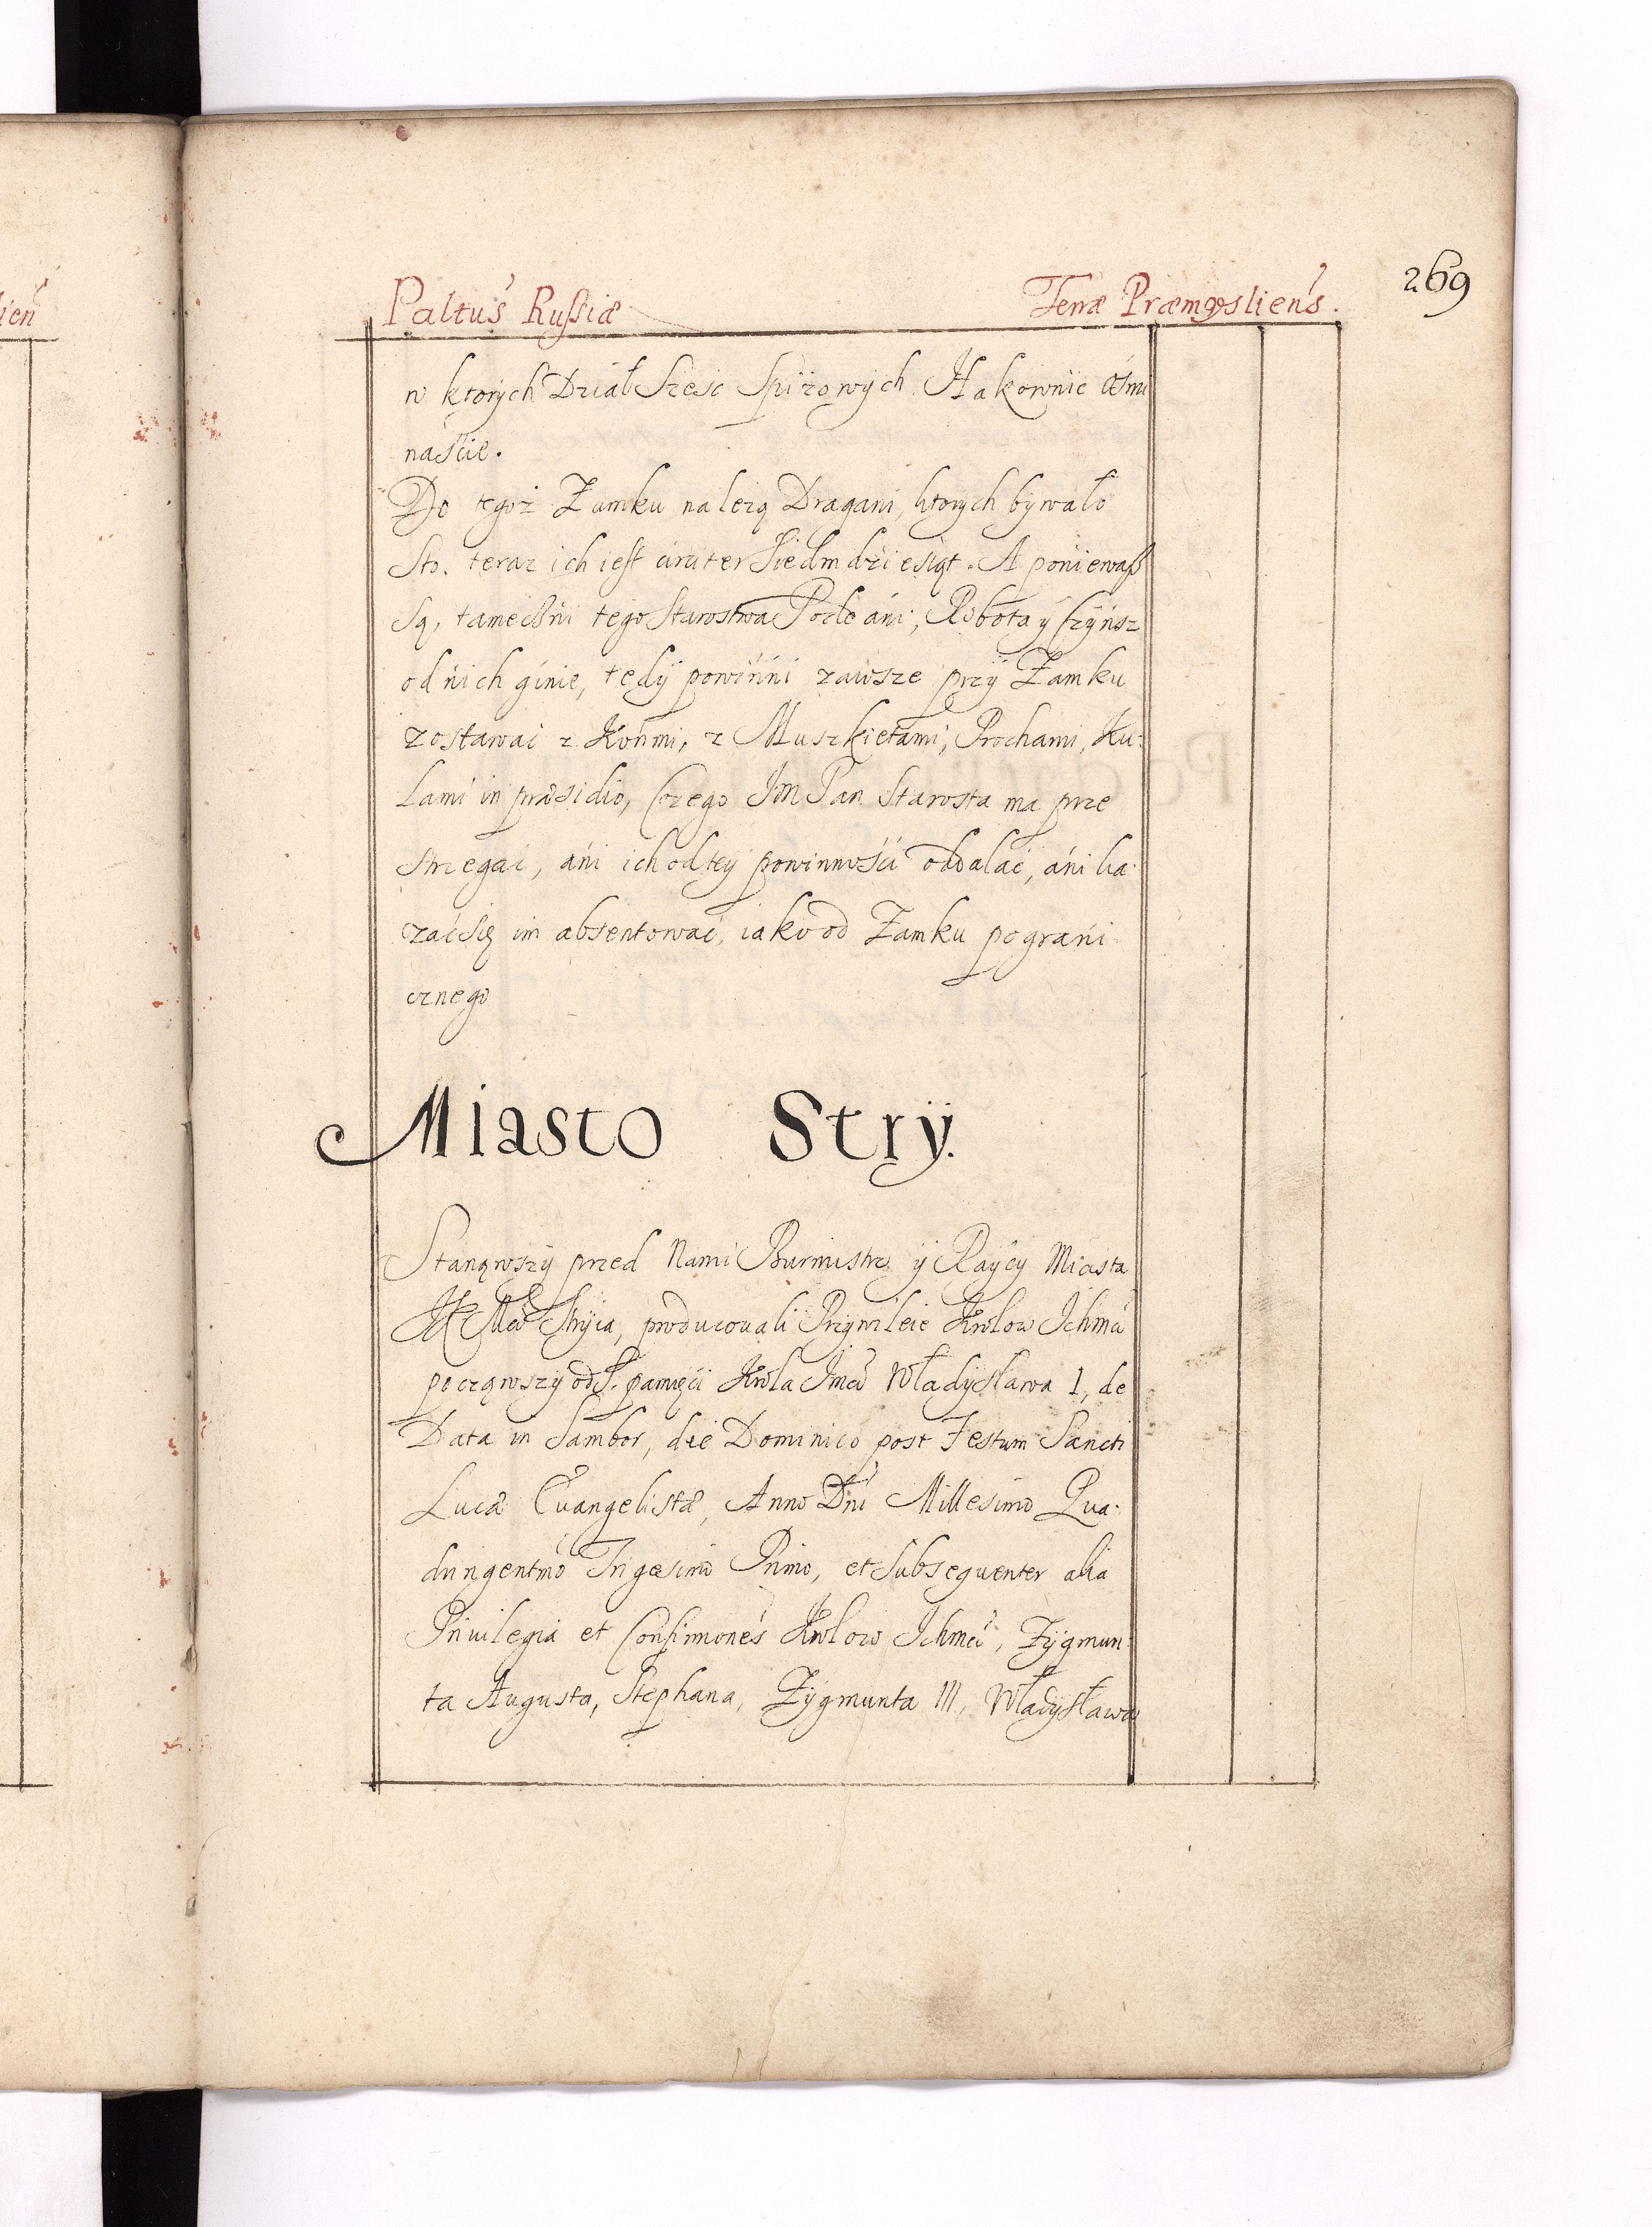 269
Paltus Russiæ Terræ Præmysliens.
w ktorych Dział Szesc Spiżowych. Hakownic Osmi
nascie.
Do tegoż Zamku należą Dragani, ktorych bywało
Sto. teraz ich iest circiter Siedmdziesiąt. A poniewaß
Są, tameczni tego Starostwa Poddani, Robota ÿ Czÿnsz
od nich ginie, tedÿ powinni zawsze przÿ Zamku
zostawać z Końmi, z Muszkietami, Prochami, Ku-
lami in præsidio, Czego Jm Pan Starosta ma prze
strzegać, ani ich od teÿ powinności oddalać, ani ka-
zać się im absentować, iako od Zamku pograni-
cznego
Miasto Strÿ.
Stanąwszÿ przed Nami Burmistrz ÿ Raÿcÿ Miasta
JK Mci Strÿia, producowali Przÿwileie Krolow Ichmci
począwszÿ od S. pamięci Krola Jmci Władÿsława I, de
Data in Sambor, die Dominico post Festum Sancti
Lucæ Euangelistæ, Anno Dni Millesimo Qua-
dringentmo Trigesimo Primo, et Subsequenter alia
Priuilegia et Confirmones Krolow Ichmci, Zÿgmun-
ta Augusta, Stephana, Zÿgmunta III, Władÿsława